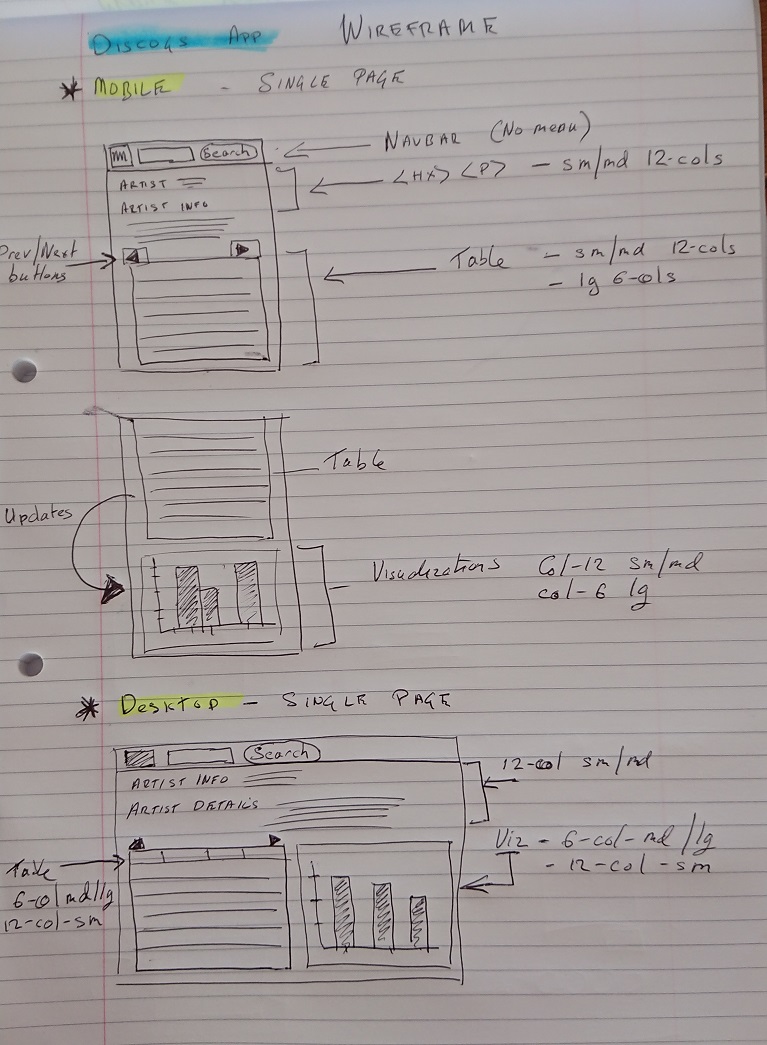 DISCOGS APP WIREFRAME
* MOBILE - SINGLE PAGE
Search
NAVBAR (No menu)
ARTIST
ARTIST INFO
<HX> <P> - sm/md 12-cols
Prev/Next
buttons
Table - sm/md 12-cols
- lg 6-cols
Table
Updates
Visualizations Col-12 sm/md
col-6 lg
* DESKTOP - SINGLE PAGE
Search
ARTIST INFO
ARTIST DETAILS
12-col sm/md
Viz - 6-col-md/lg
- 12-col-sm
Table
6-col md/lg
12-col-sm